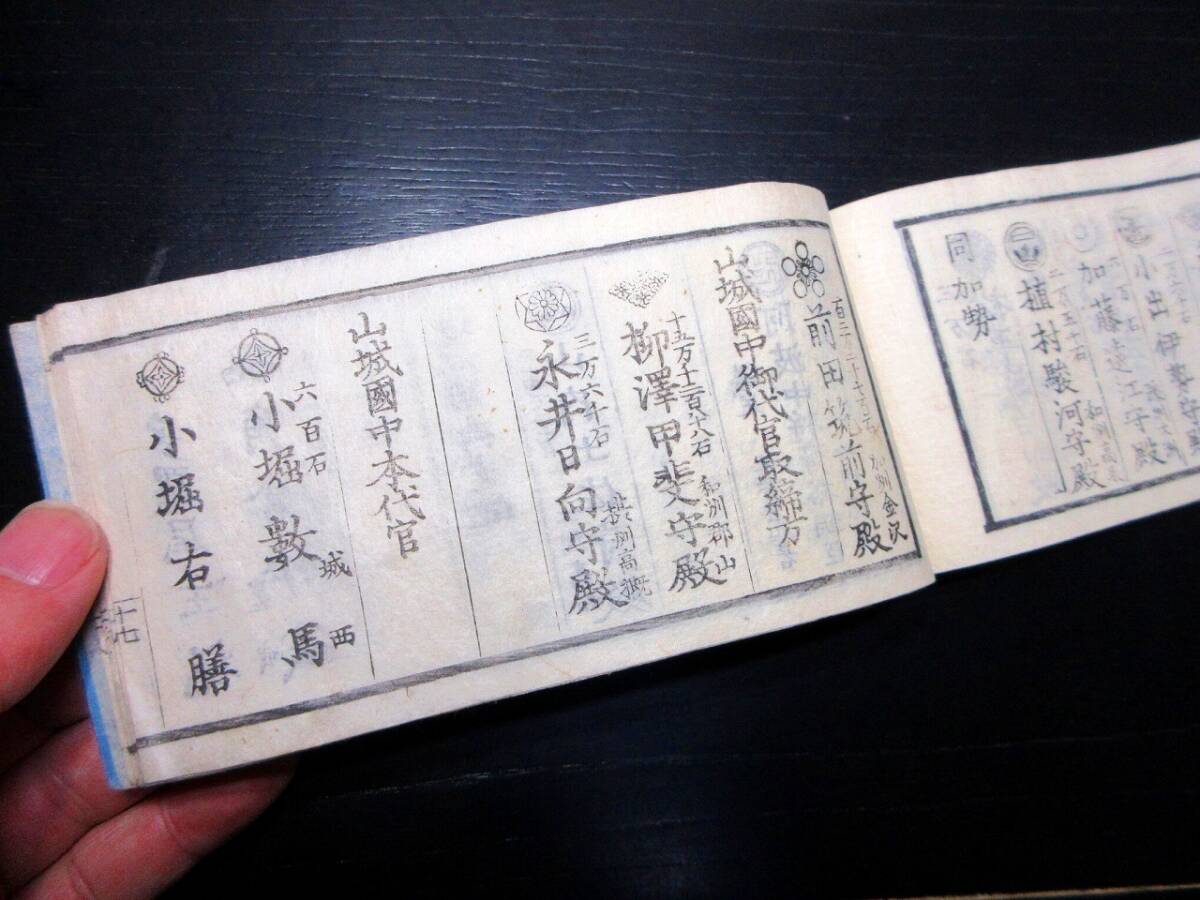 小出伊勢守殿
加藤遠江守殿
二万五千石
和洲高取
植村駿河守殿
同加勢
加州金沢
前田筑前守殿
山城國中御代官取締方
十五万千二百八八石
和洲郡山
柳澤甲斐守殿
三万六千石
摂州高槻
永井日向守殿
山城國中本代官
六百石
城西
小堀數馬
小堀右膳
十七